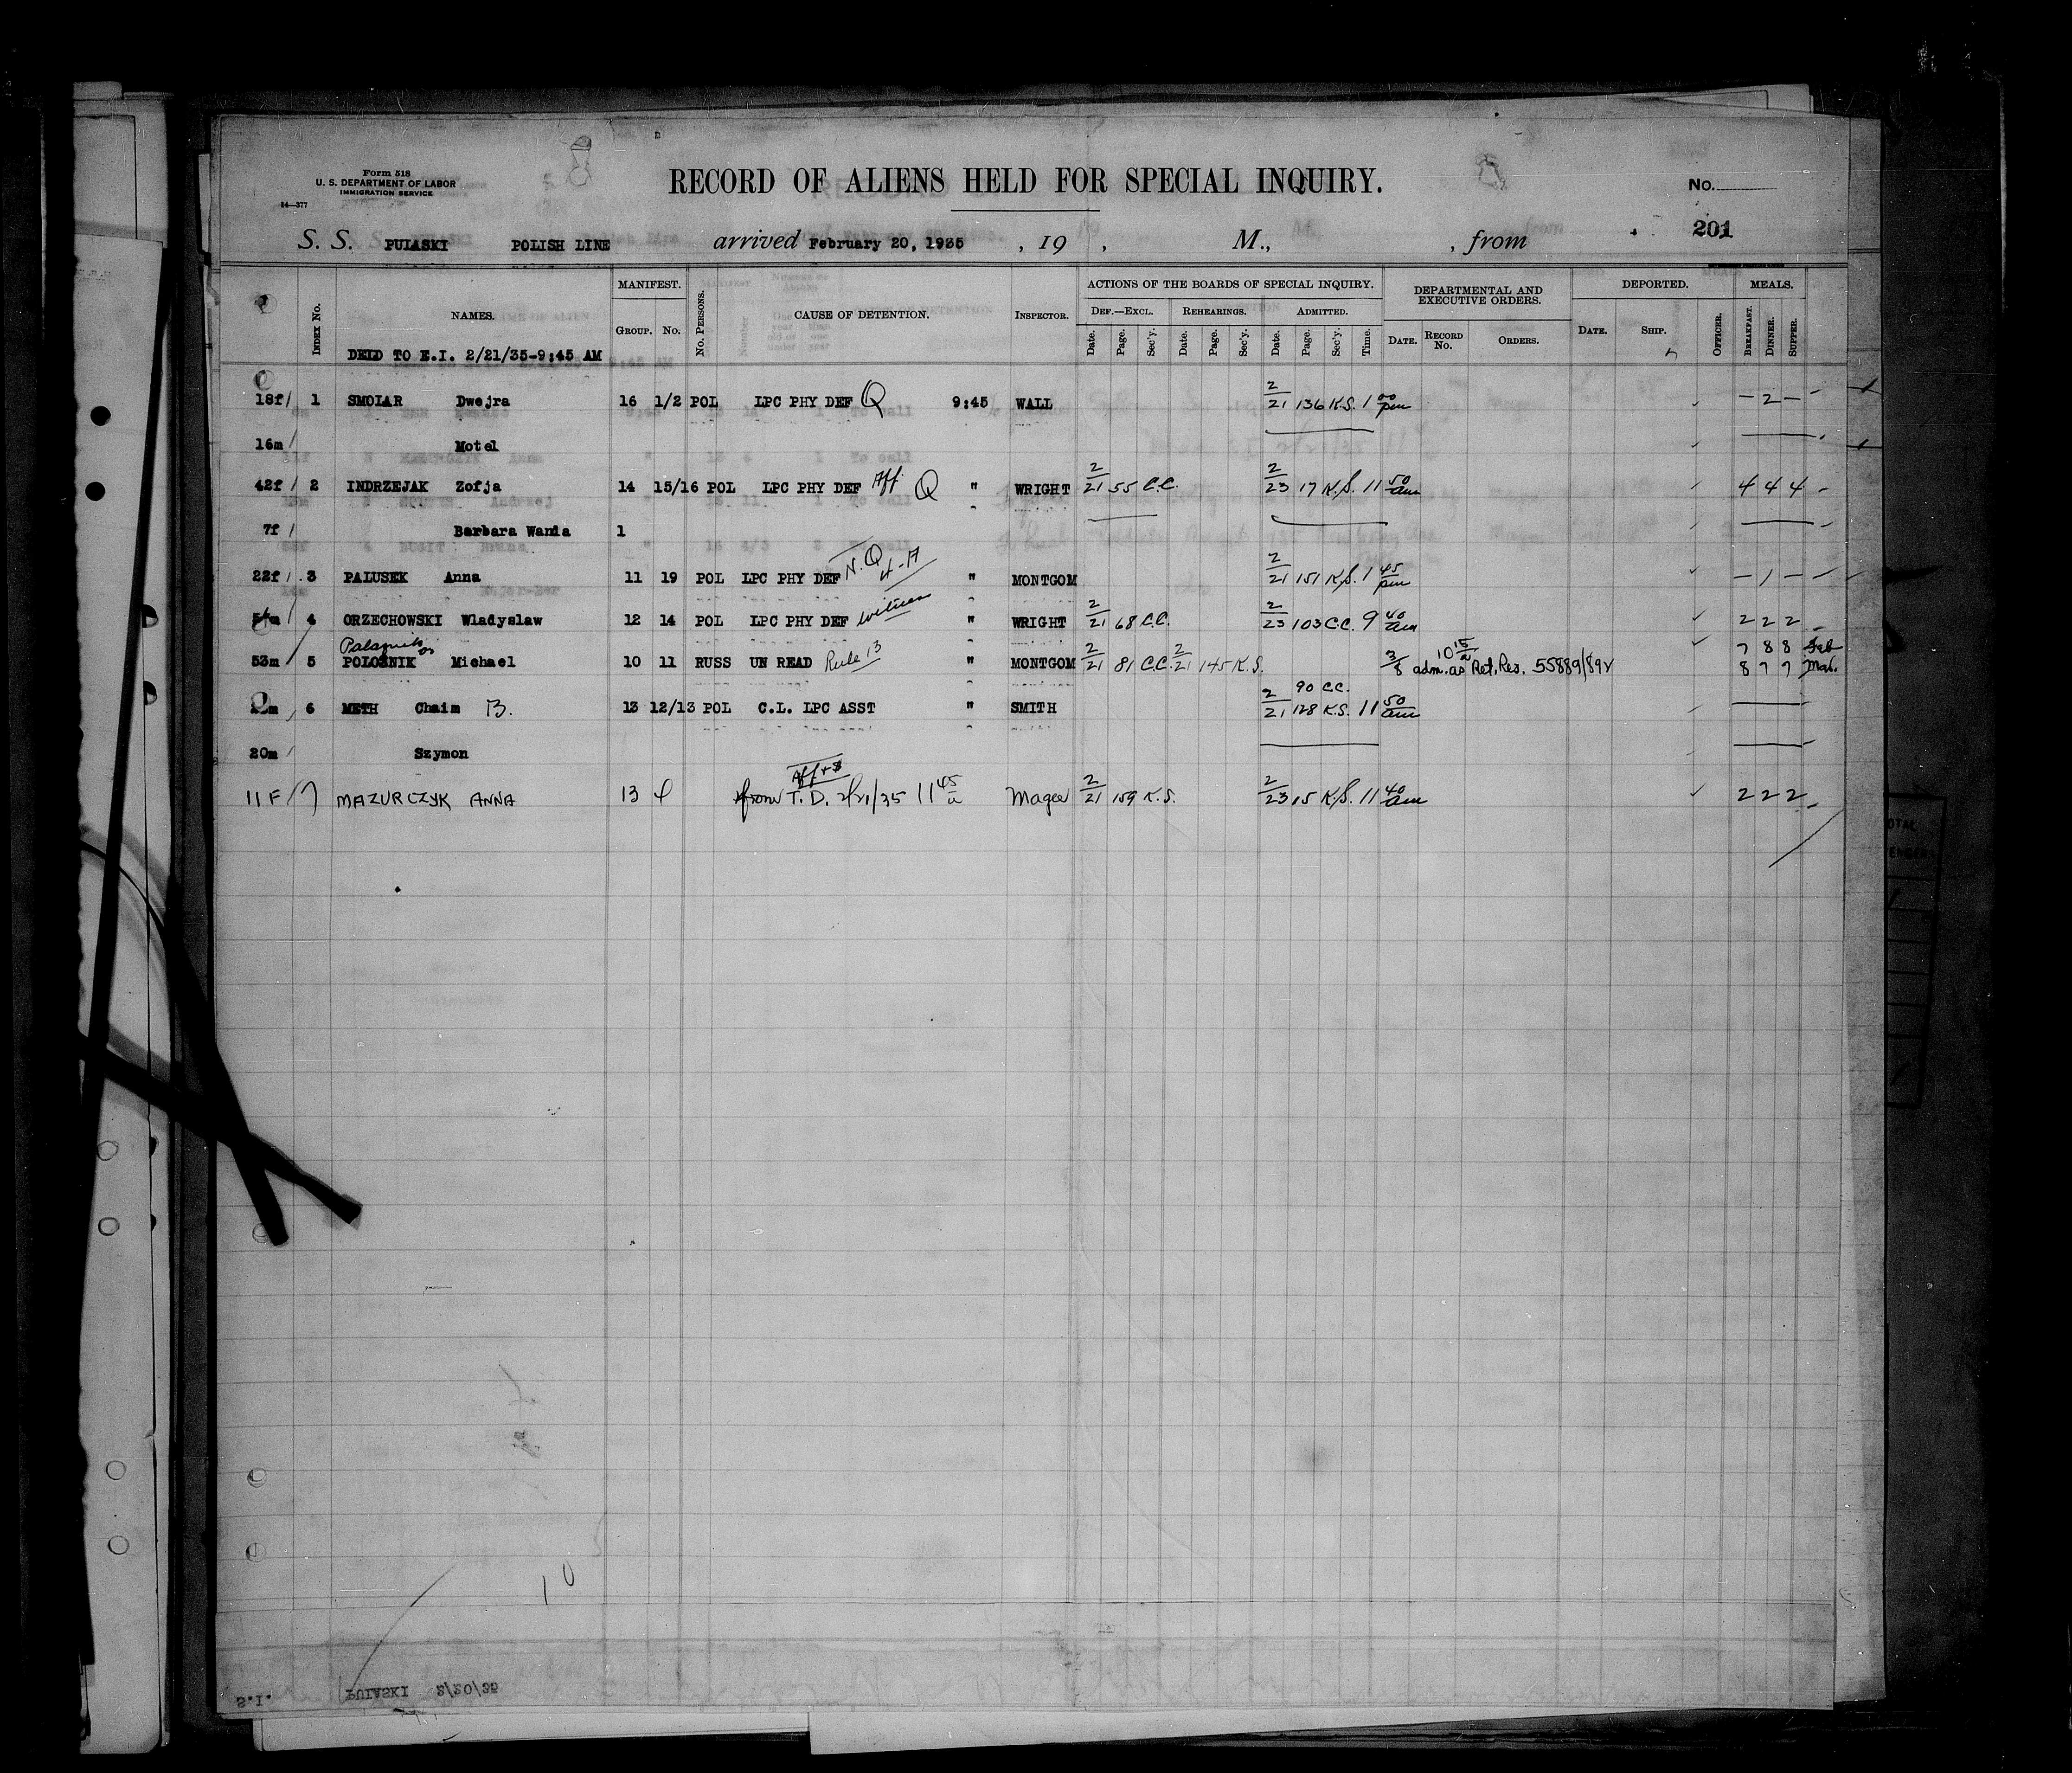 Form 518
U. S. DEPARTMENT OF LABOR
IMMIGRATION SERVICE
14—377
RECORD OF ALIENS HELD FOR SPECIAL INQUIRY.
No.
201
S. S. PULASKI POLISH LINE arrived February 20, 1935 , 19 , M., , from
INDEX NO. NAMES. MANIFEST. GROUP. NO. No. PERSONS. CAUSE OF DETENTION. INSPECTOR. ACTIONS OF THE BOARDS OF SPECIAL INQUIRY. DEPARTMENTAL AND EXECUTIVE ORDERS. DEPORTED. MEALS.
DEF.—EXCL. REHEARINGS. ADMITTED.
Date. Page. Sec'y. Date. Page. Sec'y. Date. Page. Sec'y. Time. DATE. RECORD NO. ORDERS. DATE. SHIP. OFFICER. BREAKFAST. DINNER. SUPPER.
DELD TO E.I. 2/21/35-9:45 AM
18f 1 SMOLAR Dwejra 16 1/2 POL LPC PHY DEF Q 9:45 WALL 2/21 136 K.S. 1 00 pm – 2 –
16m Motel
42f 2 INDRZEJAK Zofja 14 15/16 POL LPC PHY DEF Aff Q " WRIGHT 2/21 55 C.C. 2/23 17 K.S. 11 50 am 4 4 4
7f Barbara Wanda 1
22f 3 PALUSEK Anna 11 19 POL LPC PHY DEF N.Q. " MONTGOM 2/21 151 K.S. 1 45 pm – 1 –
4 ORZECHOWSKI Wladyslaw 12 14 POL LPC PHY DEF witness " WRIGHT 2/21 68 C.C. 2/23 103 C.C. 9 40 am 2 2 2
53m 5 POLOZNIK Michael 10 11 RUSS UN READ Rule 13 " MONTGOM 2/21 81 C.C. 2/21 145 K.S. 3/8 10 15 a adm. as Ret. Res. 55889/892 7 8 8 Feb
8 7 7 Mar.
6 METH Chaim B. 13 12/13 POL C.L. LPC ASST " SMITH 90 C.C. 2/21 128 K.S. 11 50 am
20m Szymon
11F 7 MAZURCZYK ANNA 13 from T.D. 2/21/35 11 45 a Magee 2/21 159 K.S. 2/23 15 K.S. 11 40 am 2 2 2
10
S.I. PULASKI 2/20/35